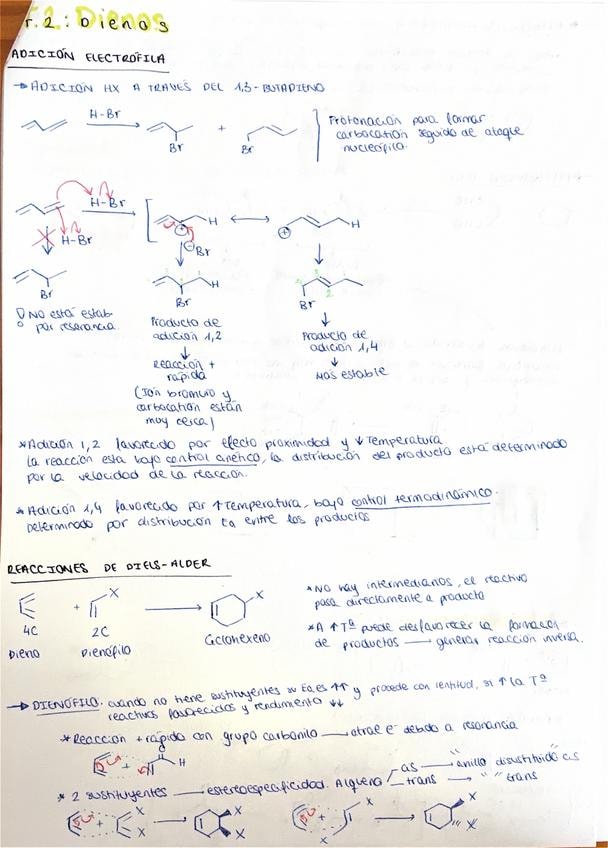 T.2: Dienos
ADICIÓN ELECTRÓFILA
→ ADICIÓN HX A TRAVÉS DEL 1,3-BUTADIENO
H-Br
+
Br
Br
Protonación para formar
carbocatión seguido de ataque
nucleófilo.
H-Br
H-Br
H
⊕
⊖Br
↔
⊕
H
Br
H
Br
Br
No está estab.
por resonancia.
Producto de
adición 1,2
↓
Reacción +
rápida
(Ión bromuro y
carbocatión están
muy cerca)
Producto de
adición 1,4
↓
Más estable
*Adición 1,2 favorecido por efecto proximidad y ↓Temperatura
La reacción está bajo control cinético, la distribución del producto está determinado
por la velocidad de la reacción.
*Adición 1,4 favorecido por ↑Temperatura, bajo control termodinámico.
Determinado por distribución Ea entre los productos
REACCIONES DE DIELS-ALDER
+
X
X
4C
2C
Ciclohexeno
Dieno
Dienófilo
*No hay intermediarios, el reactivo
pasa directamente a producto
*A ↑Tª puede desfavorecer la formación
de productos → generar reacción inversa.
→ DIENÓFILO: cuando no tiene sustituyentes su Ea es ↑↑ y procede con lentitud, si ↑ la Tª
reactivos favorecidos y rendimiento ↓↓
*Reacción + rápida con grupo carbonilo → atrae e⁻ debido a resonancia
O
H
*2 sustituyentes → estereoespecificidad. Alqueno
cis → anillo disustituido cis
trans → " " trans
+
X
X
X
X
+
X
X
X
X